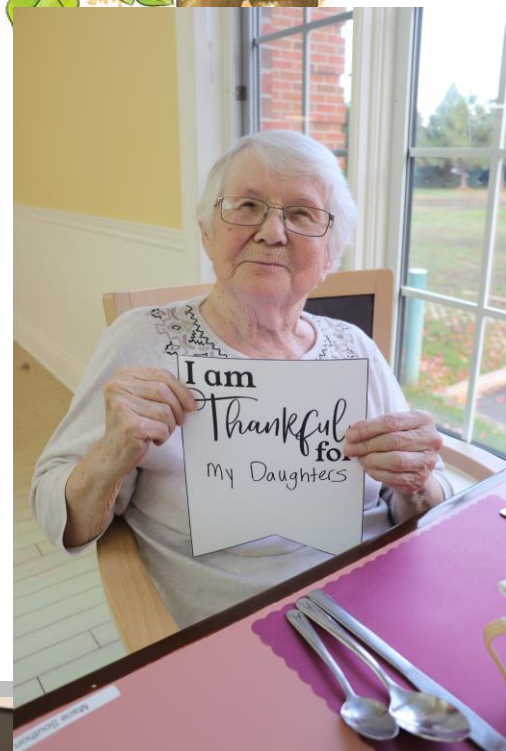 I am
Thankful
for
My Daughters